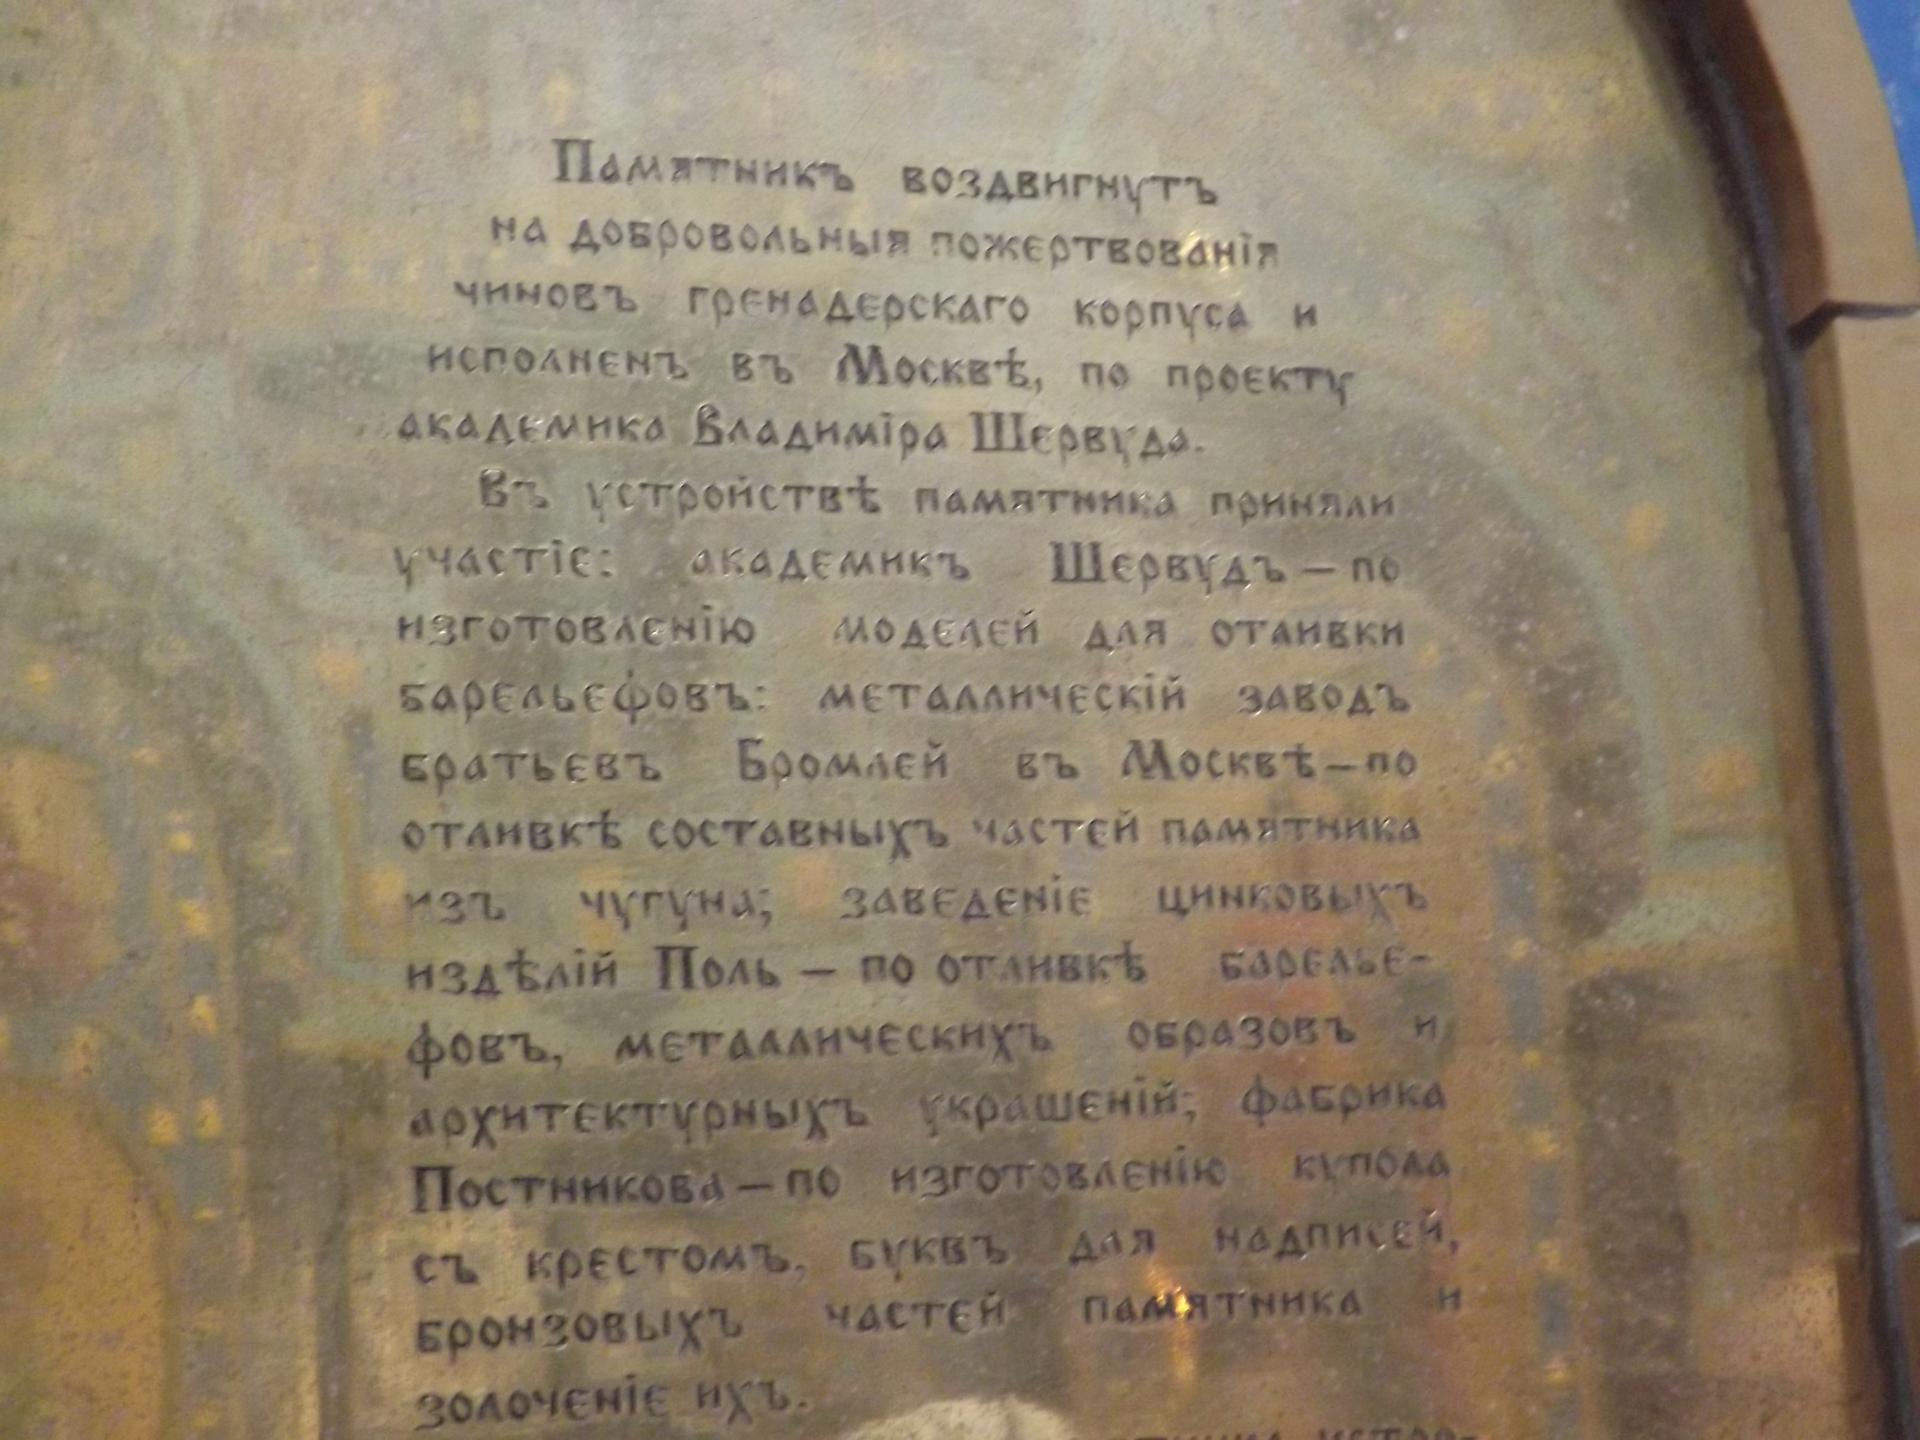 Памятникъ воздвигнутъ
на добровольныя пожертвованія
чиновъ гренадерскаго корпуса и
исполненъ въ Москвѣ, по проекту
академика Владиміра Шервуда.
Въ устройствѣ памятника приняли
участіе: академикъ Шервудъ — по
изготовленію моделей для отливки
барельефовъ: металлическій заводъ
братьевъ Бромлей въ Москвѣ — по
отливкѣ составныхъ частей памятника
изъ чугуна; заведеніе цинковыхъ
издѣлій Поль — по отливкѣ барелье-
фовъ, металлическихъ образовъ и
архитектурныхъ украшеній; фабрика
Постникова — по изготовленію купола
съ крестомъ, буквъ для надписей,
бронзовыхъ частей памятника и
золоченіе ихъ.